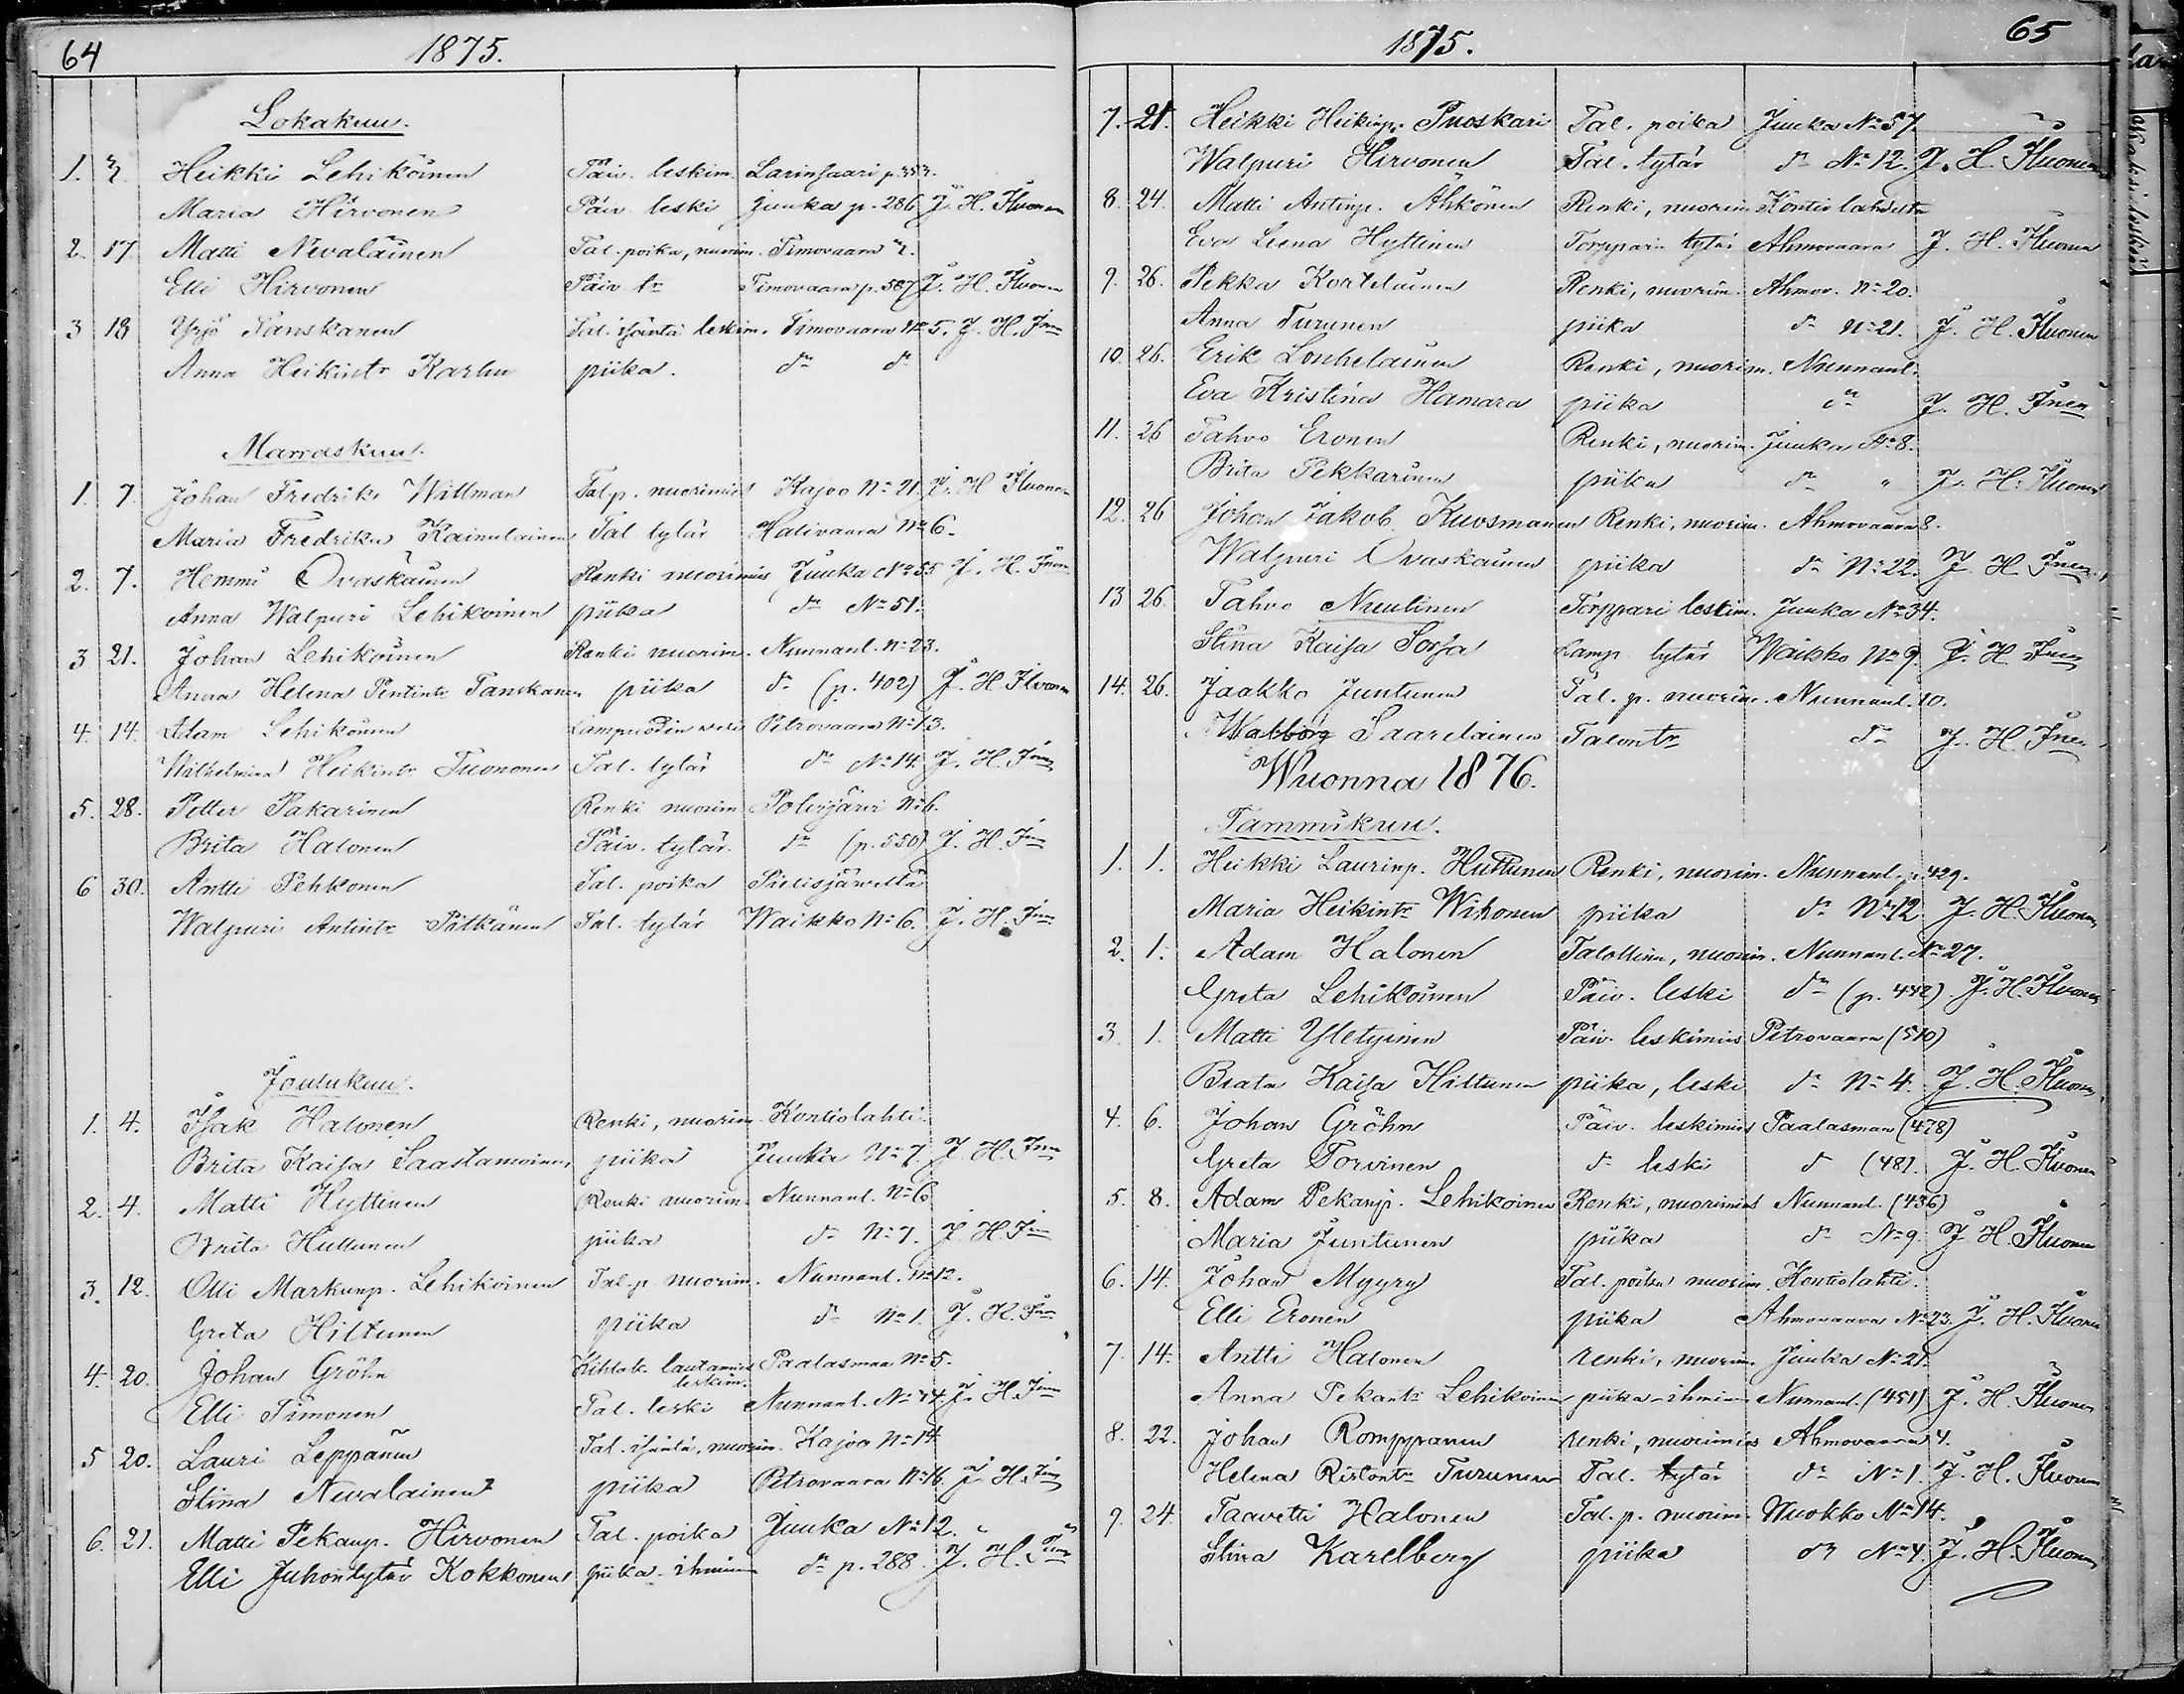 64 1875.
Lokakuu.
1. 3. Heikki Lehikoinen Päiv. leskim. Larinsaari p. 353.
Maria Hirvonen Päiv. leski Juuka p. 286 J. H. Fluonen
2. 17 Matti Nevalainen Tal. poika, nuorim. Timovaara 2.
Elli Hirvonen Päiv. tr Timovaara p. 587 J. H. Fluonen
3 18 Yrjö Tanskanen Tal. isäntä leskim. Timovaara No 5. J. H. Fnen
Anna Heikintr Karhu piika. do do
Marraskuu.
1. 7. Johan Fredrik Willman Tal p. nuorimies Kajoo No 21. J. H. Fluonen
Maria Fredrika Kainulainen Tal tytär Halivaara No 6.
2. 7. Hemmi Ovaskainen Renki nuorimies Juuka No 55 J. H. Fnen
Anna Walpuri Lehikoinen piika do No 51.
3 21. Johan Lehikoinen Renki nuorim. Nunnanl. No 23.
Anna Helena Pentintr Tanskanen piika do (p. 402) J. H. Fluonen
4. 14. Adam Lehikoinen Lampuodin veli Petrovaara No 13.
Wilhelmina Heikintr Tuononen Tal. tytär do No 14. J. H. Fnen
5. 28. Petter Pakarinen Renki nuorim Polvijärvi No 6.
Brita Halonen Päiv. tytär. do (p. 550) J. H. Fnen
6 30. Antti Pehkonen Tal. poika Pielisjärveltä
Walpuri Antintr Pitkänen Tal. tytär Waikko No 6. J. H. Fnen
Joulukuu.
1. 4. Isak Halonen Renki, nuorim Kontiolahti.
Brita Kaisa Saastamoinen piika Juuka No 7. J. H. Fnen
2. 4. Matti Hyttinen Renki nuorim. Nunnanl. No 6
Brita Huttunen piika do No 7. J. H. Fnen
3. 12. Olli Markunp. Lehikoinen Tal. p. nuorim. Nunnanl. No 12.
Greta Hiltunen piika do No 1. J. H. Fnen
4. 20. Johan Gröhn Kihlak. lautamies Paalasmaa No 5.
leskim.
Elli Timonen Tal. leski Nunnanl. No 34. J. H. Fnen
5 20. Lauri Leppänen Tal. isäntä, nuorim. Kajoo No 14
Stina Nevalainen piika Petrovaara No 16 J. H. Fnen
6. 21. Matti Pekanp. Hirvonen Tal. poika Juuka No 12.
Elli Juhontytär Kokkonen piika-ihminen do p. 288. J. H. Fnen
1875. 65
7. 21. Heikki Heikinp. Puoskari Tal. poika Juuka No 57.
Walpuri Hirvonen Tal. tytär do No 12. J. H. Fluonen
8. 24. Matti Antinp. Ähkönen Renki, nuorim Kontiolahdesta
Eva Leena Hyttinen Torpparin tytär Ahmovaara J. H. Fluonen
9. 26. Pekka Kortelainen Renki, nuorim. Ahmov. No 20.
Anna Turunen piika do No 21. J. H. Fluonen
10. 26. Erik Louhelainen Renki, nuorim. Nunnanl.
Eva Kristina Hamara piika do J. H. Fnen
11. 26 Tahvo Eronen Renki, nuorim. Juuka No 8.
Brita Pekkarinen piika do " J. H. Fluonen
12. 26 Johan Jakob Kuosmanen Renki, nuorim. Ahmovaara 8.
Walpuri Ovaskainen piika do No 22. J. H. Fnen
13 26. Tahvo Nuutinen Torppari leskim. Juuka No 34.
Stina Kaisa Sorsa Lamp tytär Waikko No 9. J. H. Fnen
14. 26. Jaakko Juntunen Tal. p. nuorim. Nunnanl. 10.
Walborg Saarelainen Talontr do J. H. Fnen
Wuonna 1876.
Tammikuu.
1. 1. Heikki Laurinp. Huttunen Renki, nuorim. Nunnanl. p. 429.
Maria Heikintr Wihonen piika do No 12 J. H. Fluonen
2. 1. Adam Halonen Talollinen, nuorim. Nunnanl. No 27.
Greta Lehikoinen Päiv. leski do (p. 442) J. H. Fluonen
3. 1. Matti Yletyinen Päiv. leskimies Petrovaara (510)
Beata Kaisa Hiltunen piika, leski do No 4. J. H. Fluonen
4. 6. Johan Gröhn Päiv. leskimies Paalasmaa (478)
Greta Torvinen do leski do (481. J. H. Fluonen
5. 8. Adam Pekanp. Lehikoinen Renki, nuorimies Nunnanl. (436)
Maria Juntunen piika do No 9. J. H. Fluonen
6. 14. Johan Myyry Tal. poika nuorim Kontiolahti.
Elli Eronen piika Ahmovaara No 23. J. H. Fluonen
7. 14. Antti Halonen renki, nuorim Juuka No 21.
Anna Pekantr Lehikoinen piika-ihminen Nunnanl. (451) J. H. Fluonen
8. 22. Johan Romppanen renki, nuorimies Ahmovaara 4.
Helena Ristontr Turunen Tal. tytär do No 1. J. H. Fluonen
9. 24. Taavetti Halonen Tal. p. nuorim. Wuokko No 14.
Stina Karelberg piika do No 4. J. H. Fluonen